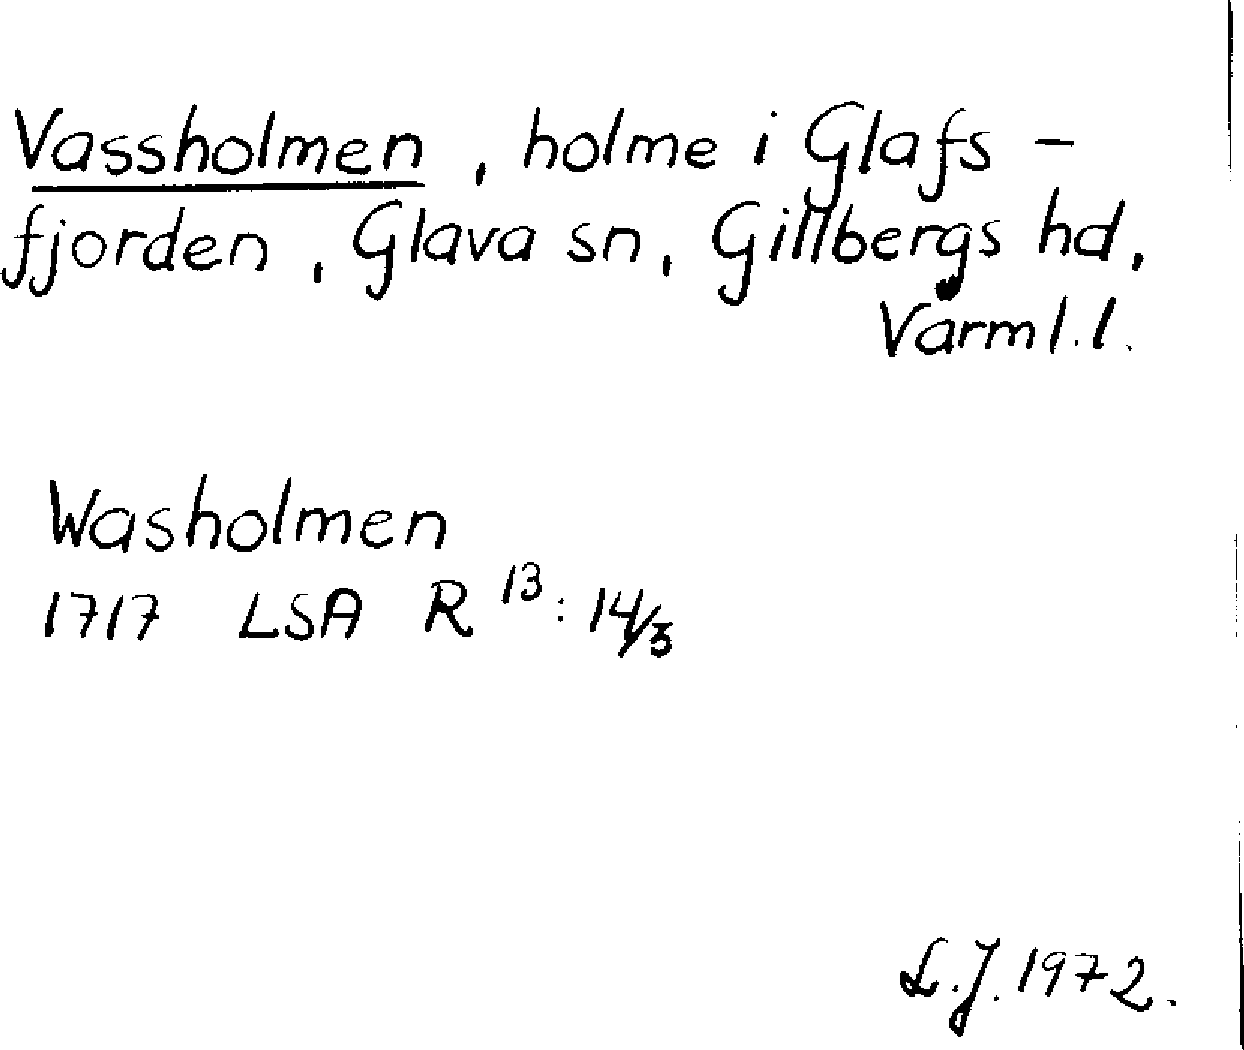 Vassholmen, holme i Glafs-
fjorden, Glava sn, Gillbergs hd,
Värml.l.
Washolmen
1717 LSA R 13:14/3
L.J. 1972.